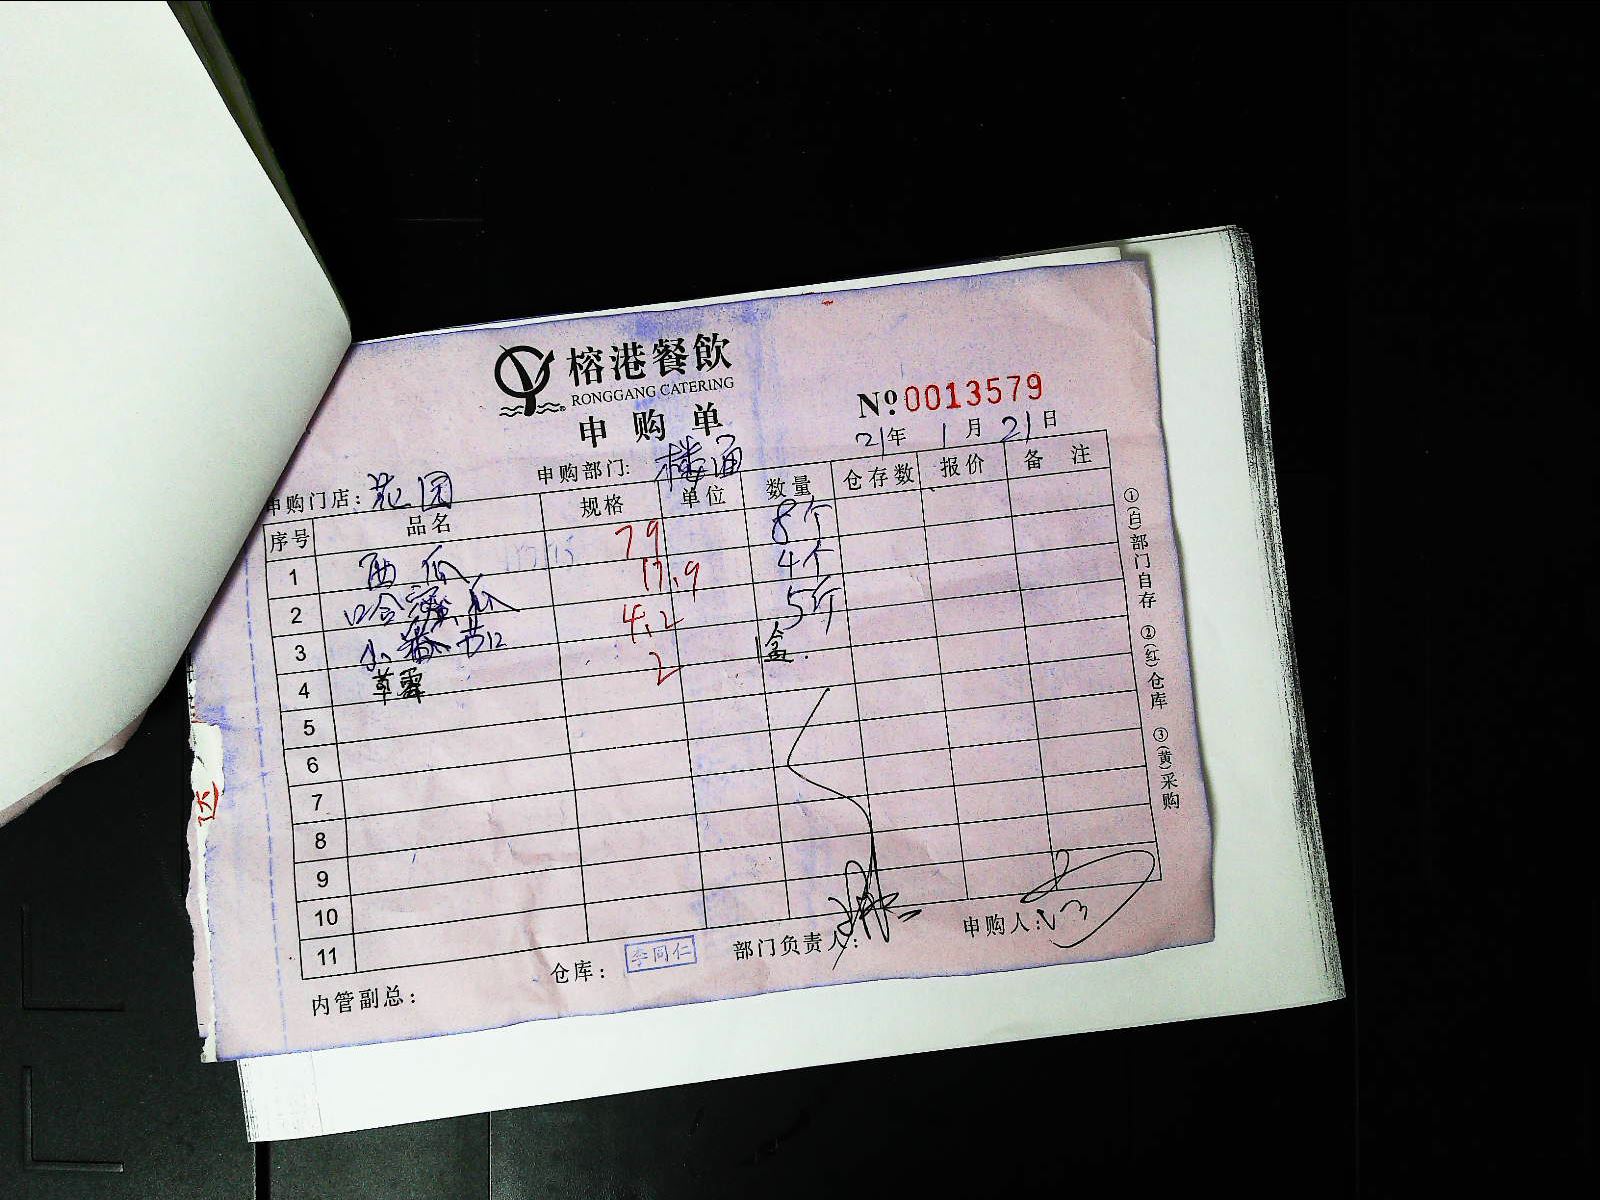 榕港餐飲
RONGGANG CATERING
申购单
№0013579
21年 1月 21日
申购门店：花园 申购部门: 楼面
序号 品名 规格 单位 数量 仓存数 报价 备注
1 西瓜 79 8个
2 哈密瓜 17.9 4个
3 小番茄 4.2 5斤
4 草霉 2 1盒.
5
6
7
8
9
10
11
内管副总： 仓库： 李同仁 部门负责人： 申购人：
①(白)部门自存 ②(红)仓库 ③(黄)采购